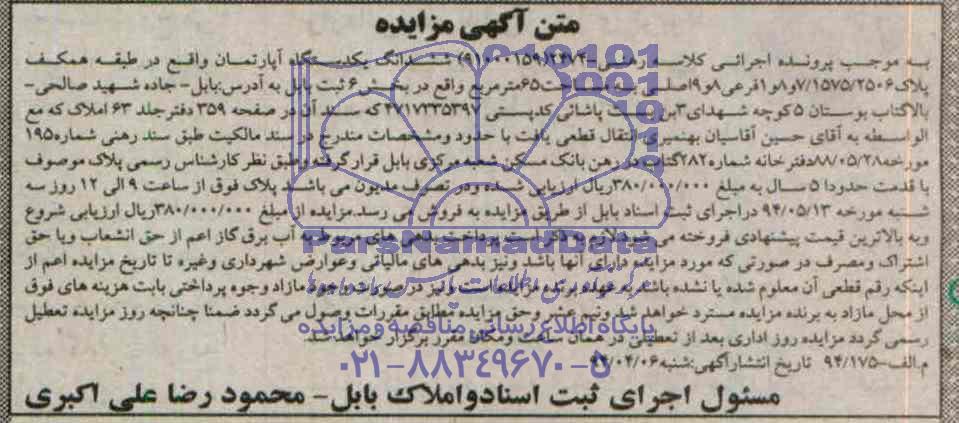 متن آگهی مزایده
به موجب پرونده اجرائی کلاسه رهنی-۲۴۷۴(۹۱۰۰۰۱۵۹) ششدانگ یکدستگاه آپارتمان واقع در طبقه همکف
پلاک۷/۱۵۷۵/۲۵۰۶و۱و۸فرعی۸و۹اصلی به مساحت۶۵مترمربع واقع در بخش۶ثبت بابل به آدرس:بابل-جاده شهید صالحی-
بالاکتاب بوستان ۵کوچه شهدای۳بن بست پاشائی کدپستی ۴۷۱۷۳۳۵۳۹۷ که سند آن در صفحه ۳۵۹ دفترجلد ۶۳ املاک که مع
الواسطه به آقای حسین آقاسیان بهنمیری انتقال قطعی یافت با حدود ومشخصات مندرج در سند مالکیت طبق سند رهنی شماره۱۹۵
مورخه۸۸/۰۵/۲۸دفترخانه شماره۲۸۲گتاب در رهن بانک مسکن شعبه مرکزی بابل قرار گرفته وطبق نظر کارشناس رسمی پلاک موصوف
با قدمت حدودا ۵ سال به مبلغ ۳۸۰/۰۰۰/۰۰۰ریال ارزیابی شده ودر تصرف مدیون می باشد پلاک فوق از ساعت ۹ الی ۱۲ روز سه
شنبه مورخه ۹۴/۰۵/۱۳ دراجرای ثبت اسناد بابل از طریق مزایده به فروش می رسد.مزایده از مبلغ ۳۸۰/۰۰۰/۰۰۰ریال ارزیابی شروع
وبه بالاترین قیمت پیشنهادی فروخته می شود.لازم به ذکر است پرداخت بدهی های مربوط به آب برق گاز اعم از حق انشعاب ویا حق
اشتراک ومصرف در صورتی که مورد مزایده دارای آنها باشد ونیز بدهی های مالیاتی وعوارض شهرداری وغیره تا تاریخ مزایده اعم از
اینکه رقم قطعی آن معلوم شده یا نشده باشد به عهده برنده مزایده است ونیز در صورت وجود مازاد وجوه پرداختی بابت هزینه های فوق
از محل مازاد به برنده مزایده مسترد خواهد شد ونیم عشر وحق مزایده مطابق مقررات وصول می گردد ضمنا چنانچه روز مزایده تعطیل
رسمی گردد مزایده روز اداری بعد از تعطیلی در همان ساعت ومکان مقرر برگزار خواهد شد.
م.الف-۹۴/۱۷۵ تاریخ انتشارآگهی:شنبه۹۴/۰۴/۰۶
مسئول اجرای ثبت اسنادواملاک بابل- محمود رضا علی اکبری
ParsNamadData
پایگاه اطلاع رسانی مناقصه ومزایده
۰۲۱-۸۸۳۴۹۶۷۰-۵